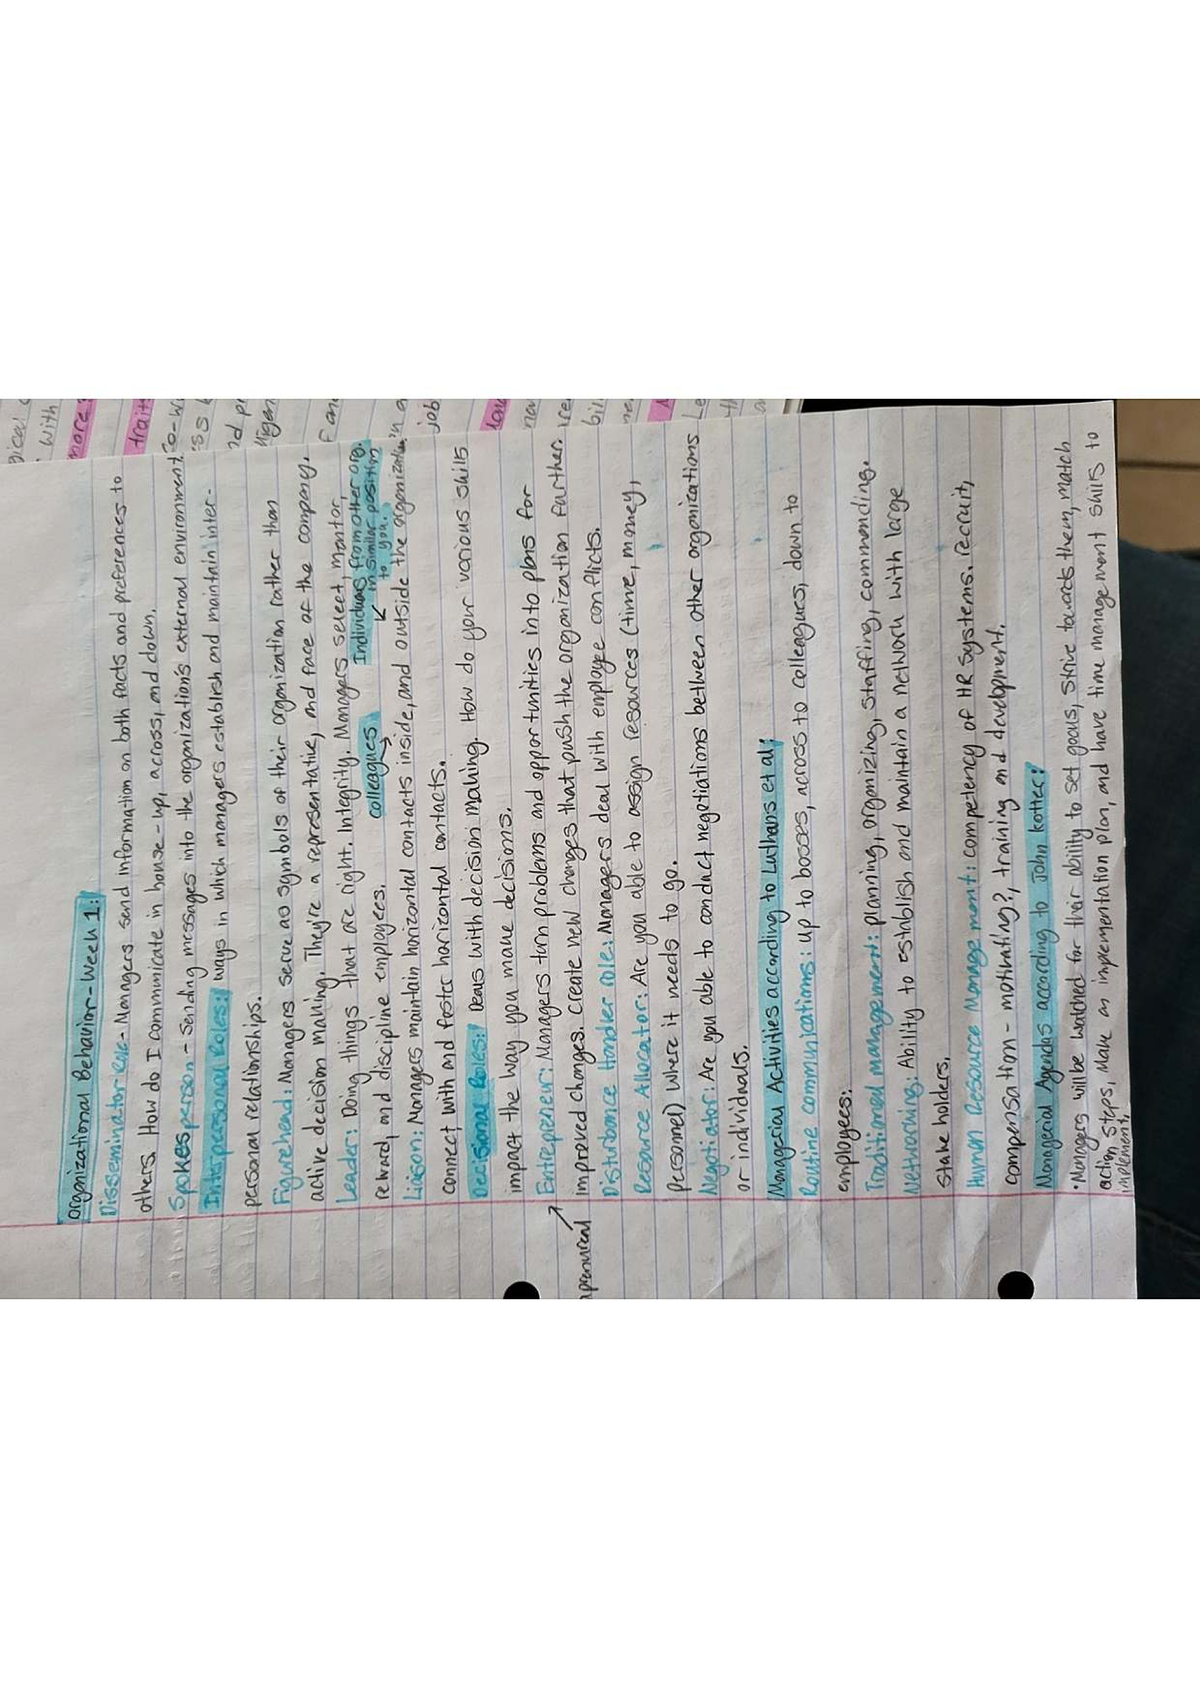 Organizational Behavior - Week 1:
Disseminator role - Managers send information on both facts and preferences to
others. How do I communicate in house - up, across, and down.
Spokesperson - sending messages into the organization's external environment.
Interpersonal Roles: ways in which managers establish and maintain inter-
personal relationships.
Figurehead: Managers serve as symbols of their organization rather than
active decision making. They're a representative, and face of the company.
Leader: Doing things that are right. Integrity. Managers select, mentor,
reward, and discipline employees.
colleagues
Individuals from other org.
in similar position
to you.
Liaison: Managers maintain horizontal contacts inside, and outside the organization
connect with and foster horizontal contacts.
Decisional Roles: Deals with decision making. How do your various skills
impact the way you make decisions.
Entrepreneur: Managers turn problems and opportunities into plans for
improved changes. Create new changes that push the organization further.
Disturbance Handler role: Managers deal with employee conflicts.
Resource Allocator: Are you able to assign resources (time, money,
personnel) where it needs to go.
Negotiator: Are you able to conduct negotiations between other organizations
or individuals.
Managerial Activities according to Luthans et al:
Routine communications: up to bosses, across to colleagues, down to
employees:
Traditional management: planning, organizing, staffing, commanding.
Networking: Ability to establish and maintain a network with large
stake holders.
Human Resource Management: competency of HR systems. recruit,
compensation - motivating?, training and development.
Managerial Agendas according to John Kotter:
• Managers will be watched for their ability to set goals, strive towards them, match
action steps, make an implementation plan, and have time management skills to
implement.
with
more
traits
job